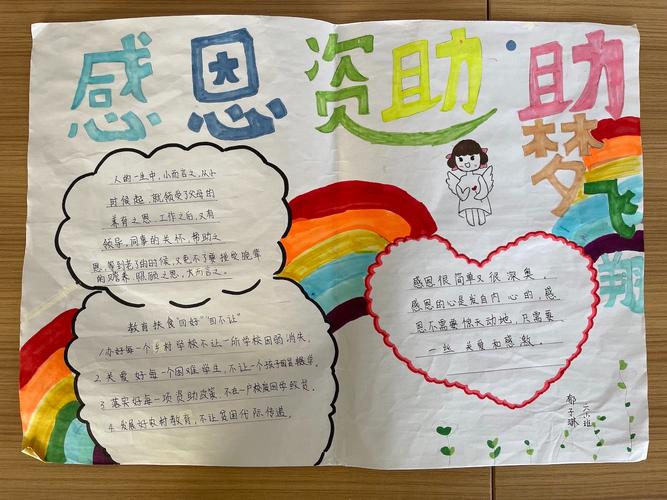 感恩资助·助
梦
飞
翔
人的一生中，小而言之，从小
时候起，就领受了父母的
养育之恩，工作之后，又有
领导，同事的关怀，帮助之
恩，等到老了的时候，又免不了要接受晚辈
的赡养、照顾之恩，大而言之。
教育扶贫“四好”“四不让”
1.办好每一个乡村学校不让一所学校因弱消失。
2.关爱好每一个困难学生，不让一个孩子因贫辍学。
3.落实好每一项资助政策，一户校庭因学致贫。
4.发展好农村教育，不让贫困代际传递。
感恩很简单又很深奥。
感恩的心是发自内 心的，感
恩不需要惊天动地，只需要
一丝 关爱和感激。
郁子琳